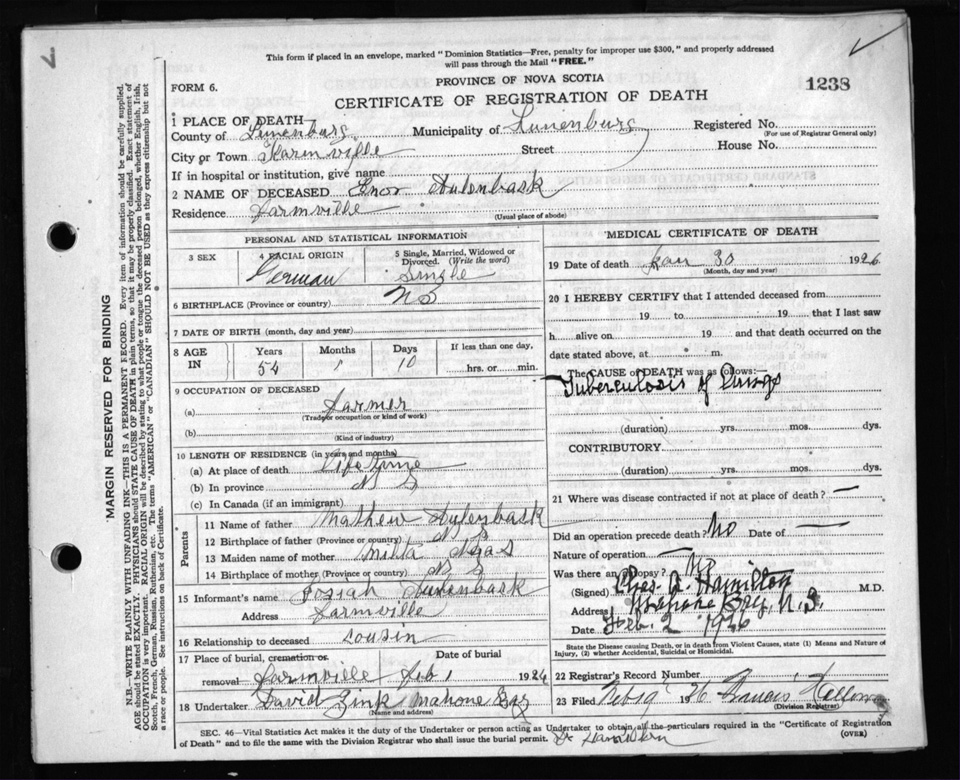 This form if placed in an envelope, marked "Dominion Statistics—Free, penalty for improper use $300," and properly addressed
will pass through the Mail "FREE."
PROVINCE OF NOVA SCOTIA
FORM 6.
CERTIFICATE OF REGISTRATION OF DEATH
1238
1 PLACE OF DEATH
County of Lunenburg Municipality of Lunenburg Registered No.
(For use of Registrar General only)
City or Town Farmville Street House No.
If in hospital or institution, give name
2 NAME OF DECEASED Enos
Residence Farmville
(Usual place of abode)
PERSONAL AND STATISTICAL INFORMATION
3 SEX
4 RACIAL ORIGIN
German
5 Single, Married, Widowed or
Divorced. (Write the word)
Single
6 BIRTHPLACE (Province or country) N S
7 DATE OF BIRTH (month, day and year)
8 AGE IN
Years Months Days
If less than one day,
54 1 10
hrs. or min.
9 OCCUPATION OF DECEASED
(a) Farmer
(Trade or occupation or kind of work)
(b)
(Kind of industry)
10 LENGTH OF RESIDENCE (in years and months)
(a) At place of death Life time
(b) In province N S
(c) In Canada (if an immigrant)
Parents
11 Name of father Mathew
12 Birthplace of father (Province or country) N S
13 Maiden name of mother
14 Birthplace of mother (Province or country) N S
15 Informant's name Josiah
Address Farmville
16 Relationship to deceased cousin
17 Place of burial, cremation or
removal Farmville
Date of burial
Feb 1 1926
18 Undertaker David Zink Mahone Bay
(Name and address)
MEDICAL CERTIFICATE OF DEATH
19 Date of death Jan 30 1926
(Month, day and year)
20 I HEREBY CERTIFY that I attended deceased from
19 to 19 that I last saw
h alive on 19 and that death occurred on the
date stated above, at m.
The CAUSE of DEATH was as follows:
Tuberculosis of Lungs
(duration) yrs. mos. dys.
CONTRIBUTORY
(duration) yrs. mos. dys.
21 Where was disease contracted if not at place of death? —
Did an operation precede death? No Date of —
Nature of operation —
Was there an autopsy? No
(Signed) Chas. A. Hamilton M.D.
Address Mahone Bay, N.S.
Date Feb. 2 1926
State the Disease causing Death, or in death from Violent Causes, state (1) Means and Nature of
Injury, (2) whether Accidental, Suicidal or Homicidal.
22 Registrar's Record Number
23 Filed Feb 19 26 Francis
(Division Registrar)
SEC. 46—Vital Statistics Act makes it the duty of the Undertaker or person acting as Undertaker to obtain all the particulars required in the "Certificate of Registration
of Death" and to file the same with the Division Registrar who shall issue the burial permit. Dr Hamilton (OVER)
MARGIN RESERVED FOR BINDING
N.B.—WRITE PLAINLY WITH UNFADING INK—THIS IS A PERMANENT RECORD. Every item of information should be carefully supplied.
AGE should be stated EXACTLY. PHYSICIANS should STATE CAUSE OF DEATH in plain terms, so that it may be properly classified. Exact statement of
OCCUPATION is very important. RACIAL ORIGIN will be described by stating to what people or tongue the deceased person belonged, whether English, Irish,
Scotch, French, German, Russian, Ruthenian, etc. The terms "AMERICAN" or "CANADIAN" SHOULD NOT BE USED as they express citizenship but not
a race or people. See instructions on back of Certificate.